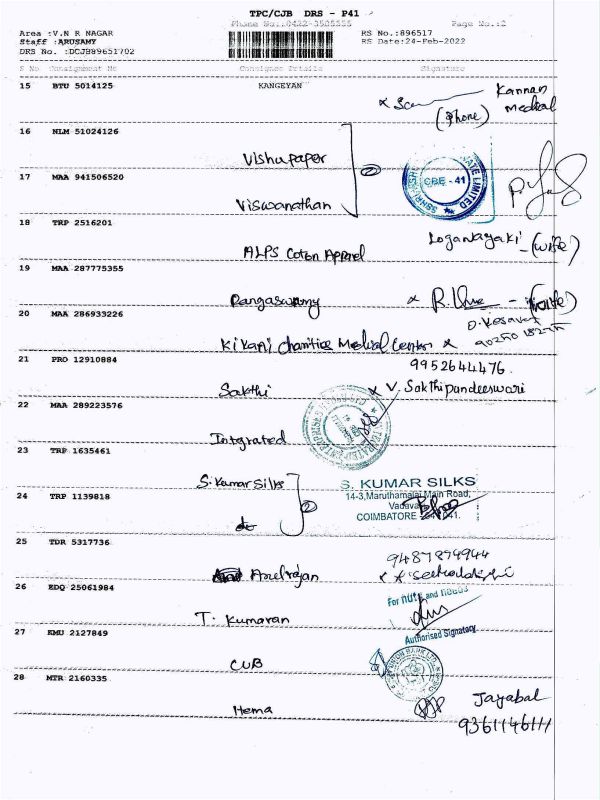 TPC/CJB DRS - P41
Phone No.:0422-3505555 Page No.:2
Area :V.N R NAGAR RS No.:896517
Staff :ARUSAMY RS Date:24-Feb-2022
DRS No. :DCJB89651702
S No Consignment No Consignee Details Signature
15 BTU 5014125 KANGEYAN
Kannan
Medical
(Phone)
16 NLM 51024126
Vishu paper
17 MAA 941506520
CBE - 41
Viswanathan
18 TRP 2516201
ALPS Coton Apparel
Loganayaki - (wife)
19 MAA 287775355
Rangaswamy
20 MAA 286933226
Kikani Charities Medical Center
21 PRO 12910884
9952644476
Sakthi
V. Sakthipandeeswari
22 MAA 289223576
Intgrated
23 TRP 1635461
S. Kumar Silks
S. KUMAR SILKS
24 TRP 1139818
14-3, Maruthamalai Main Road,
COIMBATORE
25 TDR 5317736
9487879944
Arulrajan
26 EDQ 25061984
T. Kumaran
Authorised Signatory
27 KMU 2127849
CUB
28 MTR 2160335
Hema
Jayabal
9361146111